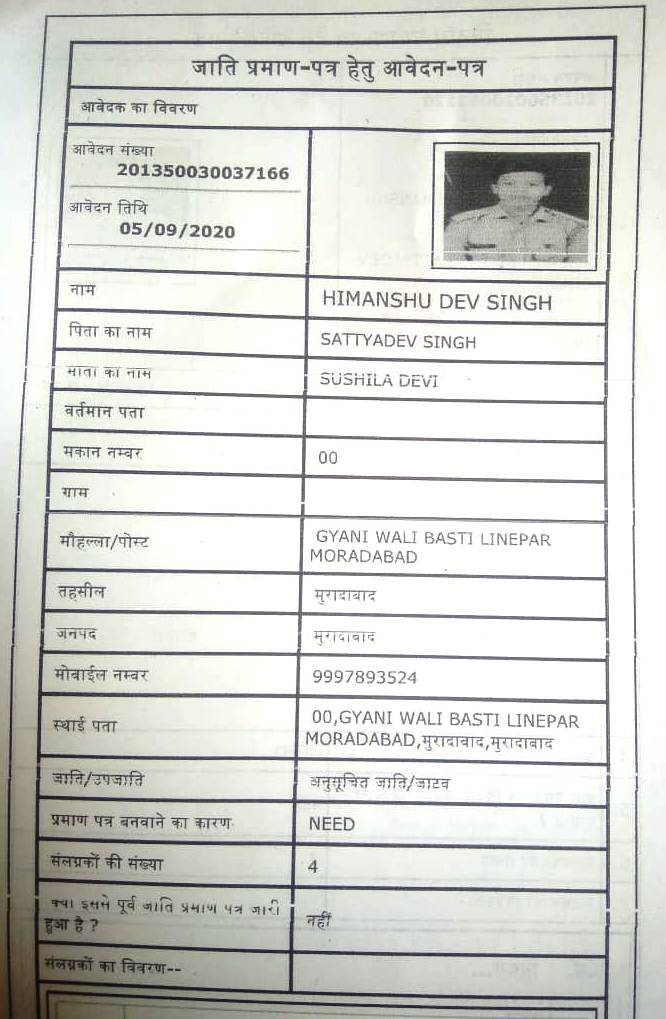 जाति प्रमाण-पत्र हेतु आवेदन-पत्र
आवेदक का विवरण
आवेदन संख्या
201350030037166
आवेदन तिथि
05/09/2020
नाम HIMANSHU DEV SINGH
पिता का नाम SATTYADEV SINGH
माता का नाम SUSHILA DEVI
वर्तमान पता
मकान नम्बर 00
ग्राम
मौहल्ला/पोस्ट GYANI WALI BASTI LINEPAR
MORADABAD
तहसील मुरादाबाद
जनपद मुरादाबाद
मोबाईल नम्बर 9997893524
स्थाई पता 00,GYANI WALI BASTI LINEPAR
MORADABAD,मुरादाबाद,मुरादाबाद
जाति/उपजाति अनुसूचित जाति/जाटव
प्रमाण पत्र बनवाने का कारण NEED
संलग्नकों की संख्या 4
क्या इससे पूर्व जाति प्रमाण पत्र जारी
हुआ है ? नहीं
संलग्नकों का विवरण--